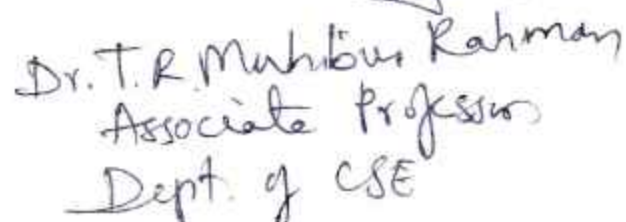 Dr. T.R. Muhibur Rahman
Associate Professor
Dept. of CSE